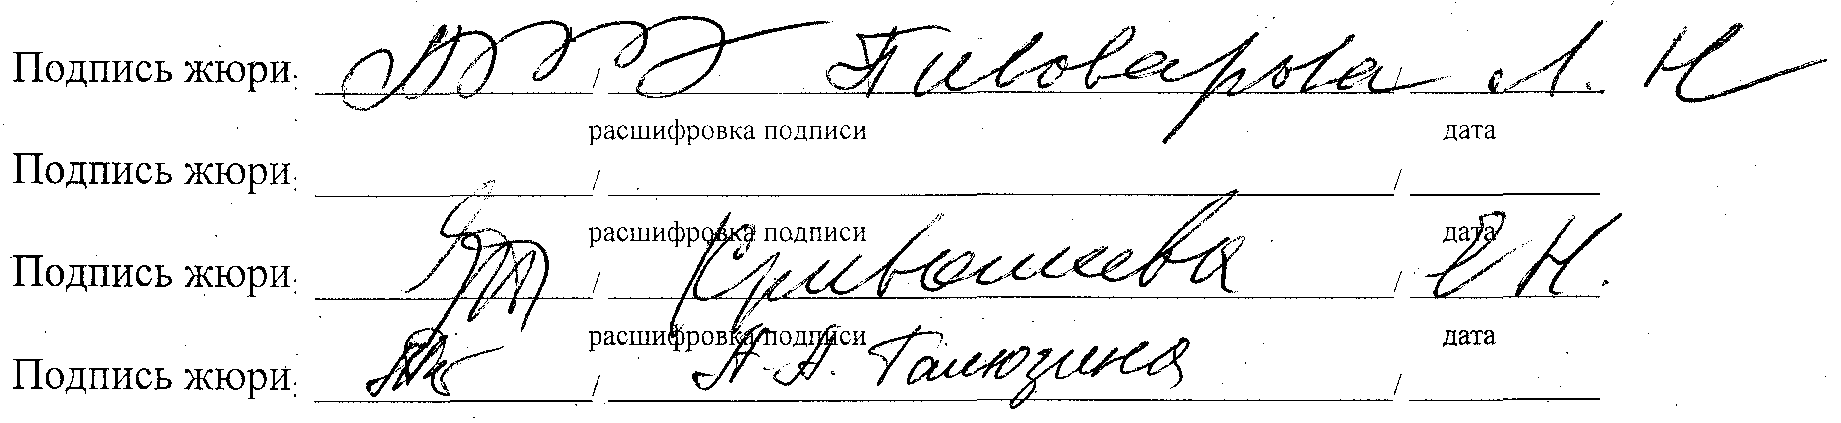 Подпись жюри: / Пивоварова / Л. Н
расшифровка подписи дата
Подпись жюри: / /
расшифровка подписи дата
Подпись жюри: / Кривошеева / Е Н.
расшифровка подписи дата
Подпись жюри: / А. А. Галюзина /